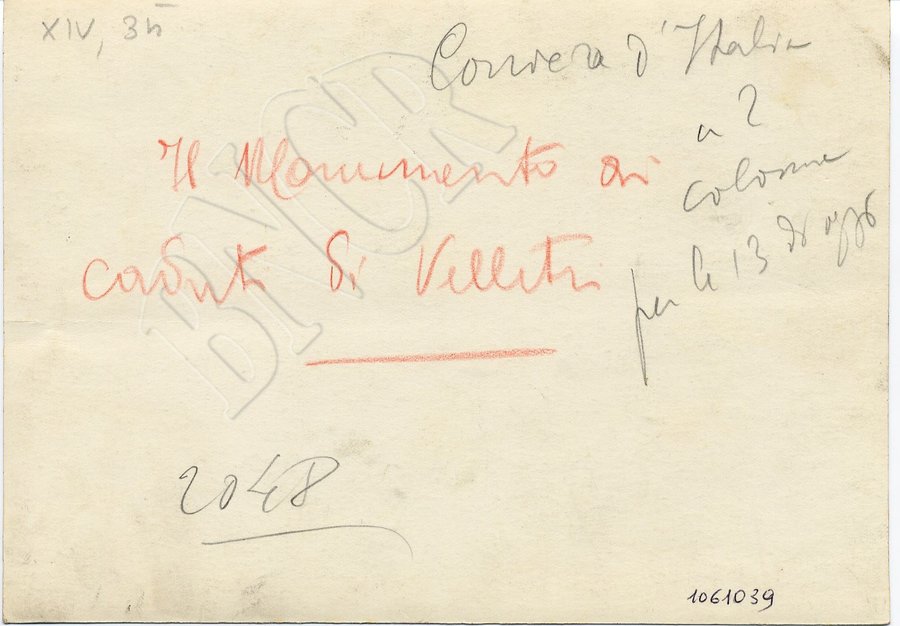 XIV, 35
Corriere d'Italia
a 2
colonne
per le 13 di oggi
Il Monumento ai
caduti di Velletri
2048
1061039
BNCR